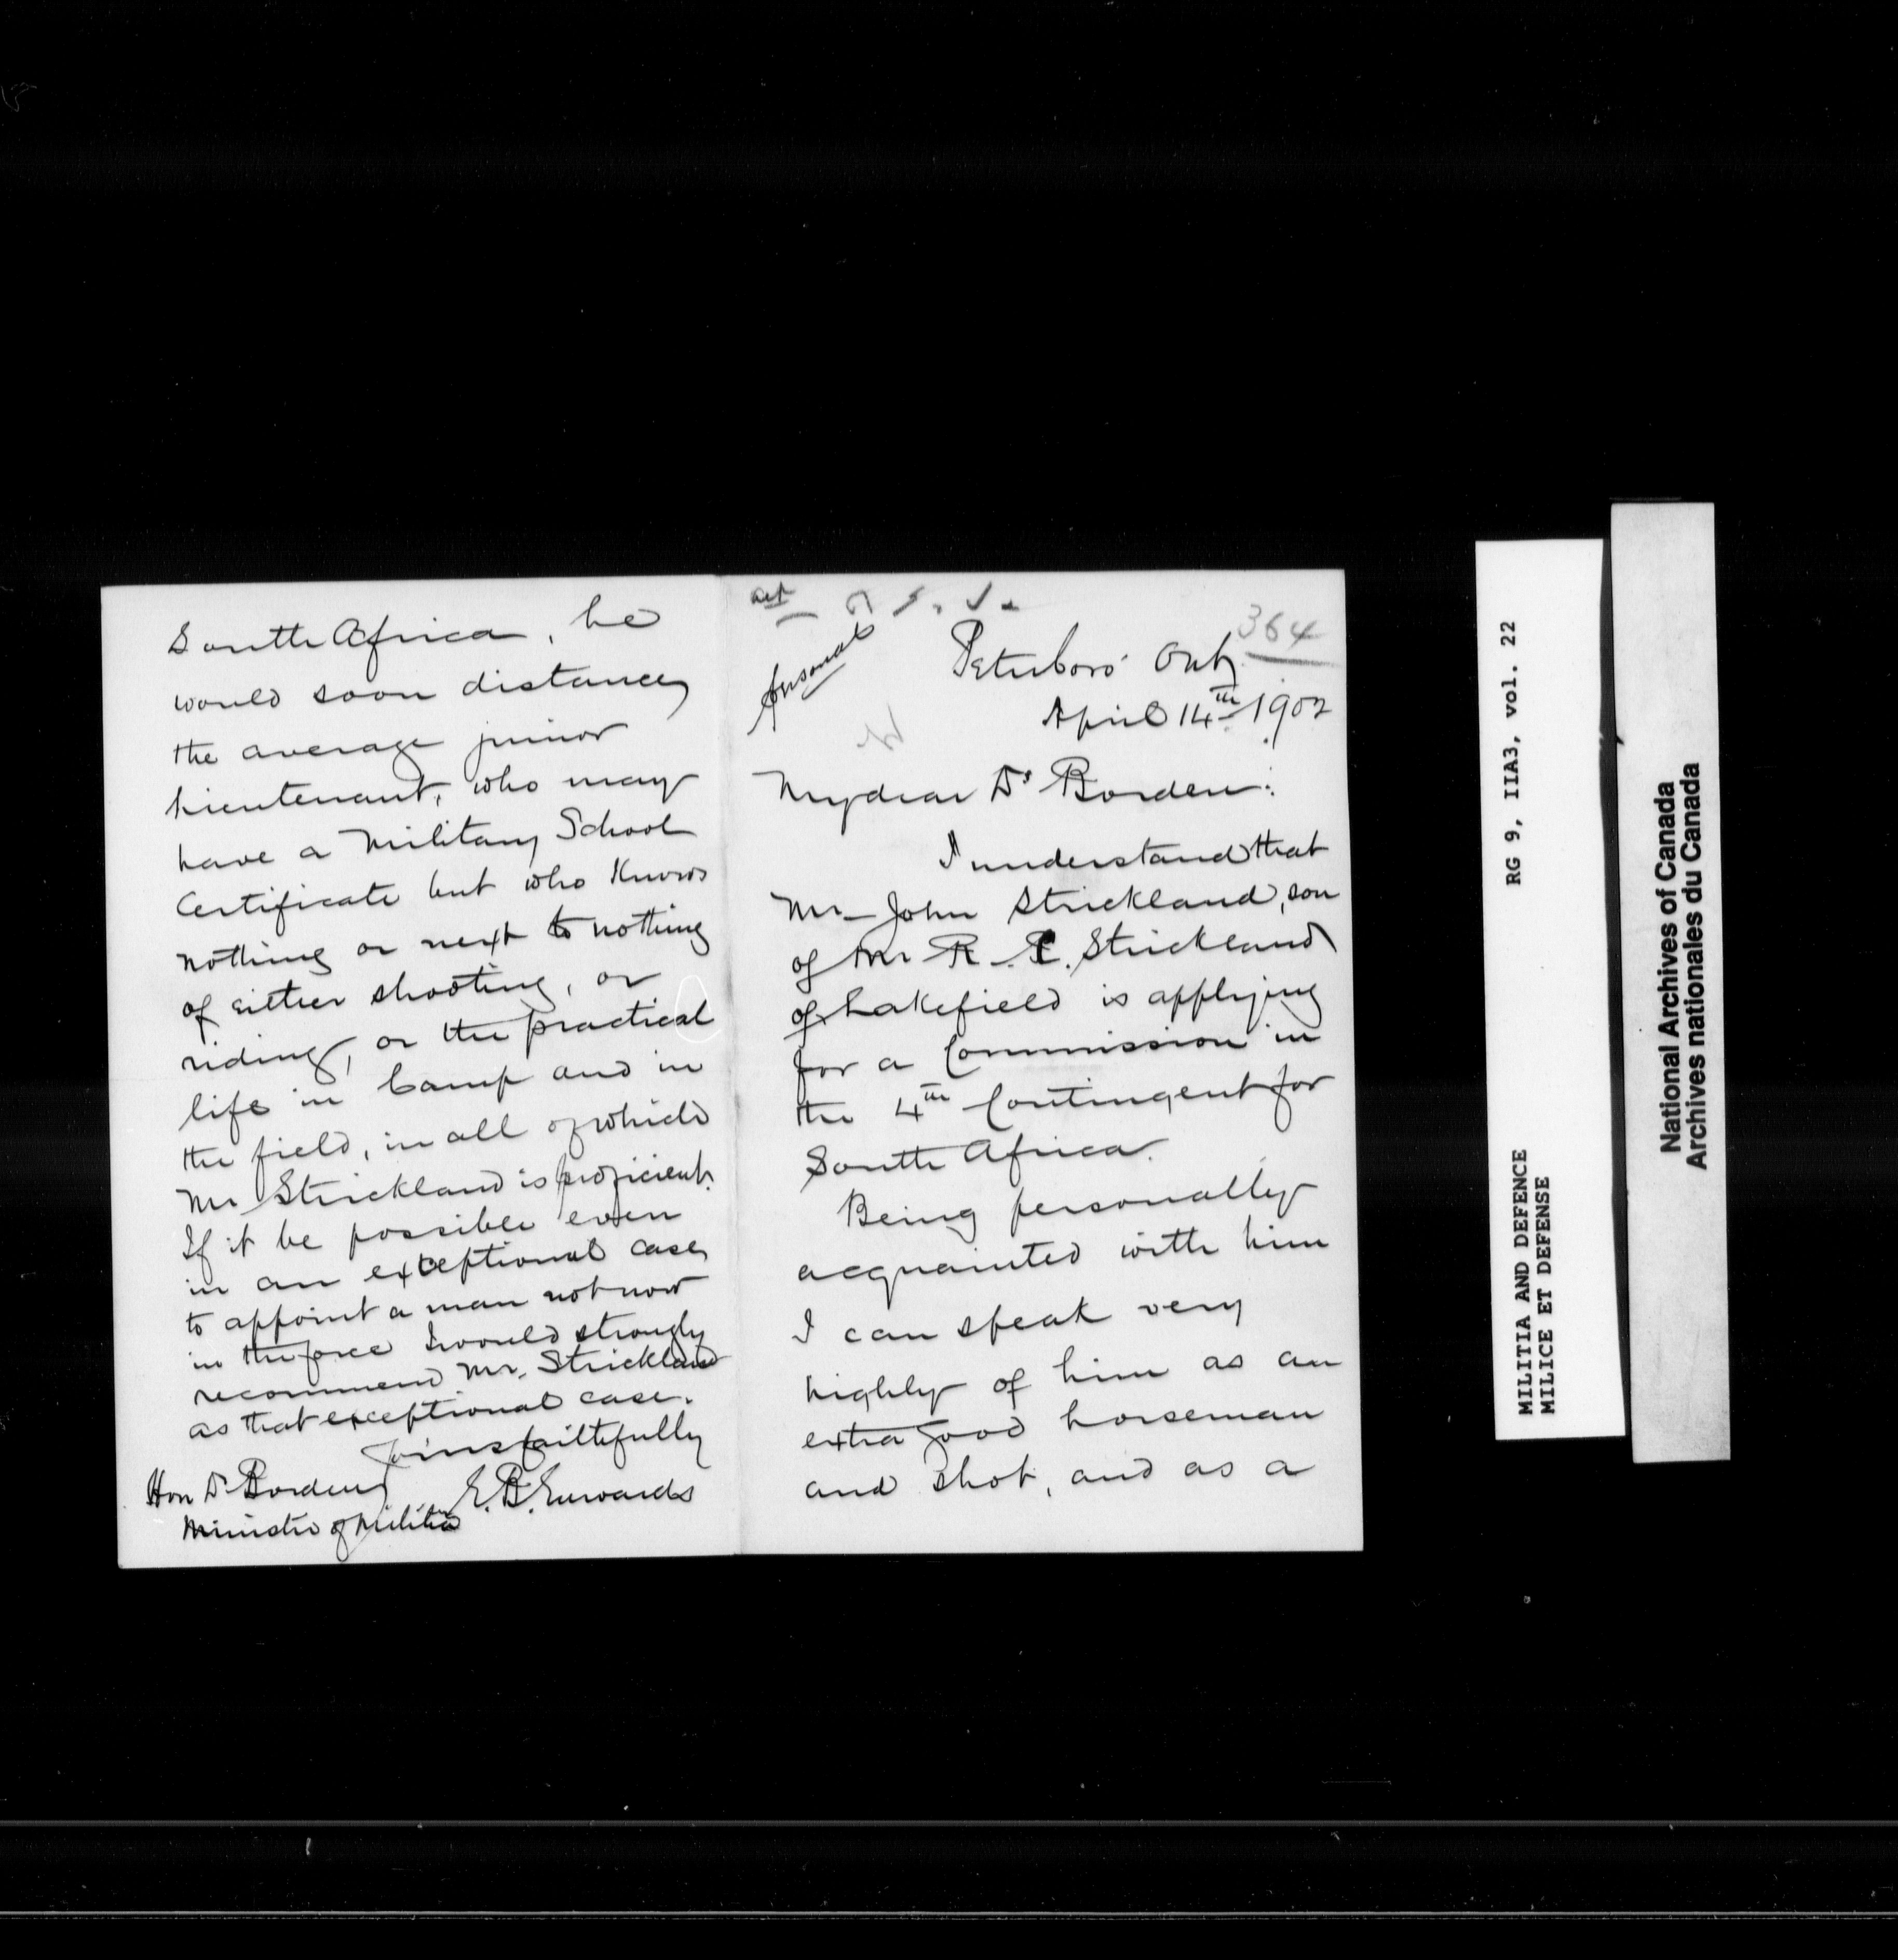 364
Personal
Peterboro' Ont
April 14th 1902
My dear Dr Borden:
I understand that
Mr John Strickland, son
of Mr R. C. Strickland
of Lakefield is applying
for a Commission in
the 4th Contingent for
South Africa.
Being personally
acquainted with him
I can speak very
highly of him as an
extra good horseman
and shot, and as a
South Africa, he
would soon distance
the average junior
lieutenant, who may
have a Military School
Certificate but who knows
nothing or next to nothing
of either shooting, or
riding, or the practical
life in Camp and in
the field, in all of which
Mr Strickland is proficient.
If it be possible even
in an exceptional case
to appoint a man not now
in the force I would strongly
recommend Mr. Strickland
as that exceptional case.
Yours faithfully
E. B. Edwards
Hon Dr Borden
Minister of Militia
RG 9, IIA3, vol. 22
MILITIA AND DEFENCE
MILICE ET DEFENSE
National Archives of Canada
Archives nationales du Canada